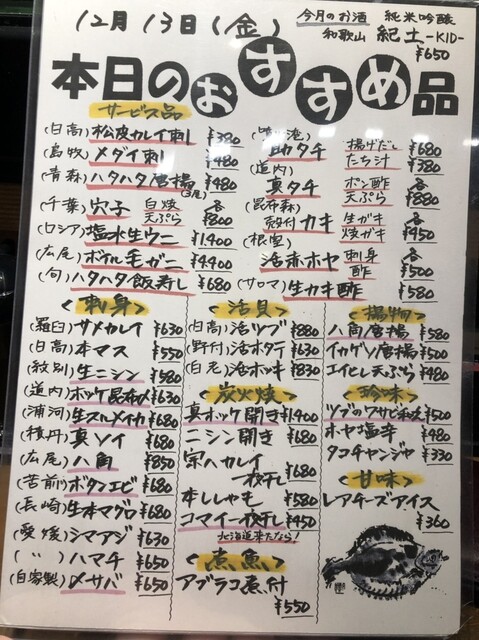 12月13日(金)
今月のお酒 純米吟醸
和歌山 紀土-KID-
¥650
本日のおすすめ品
サービス品
(日高)松皮カレイ刺 ¥380
(島牧)メダイ刺 ¥480
(青森)ハタハタ唐揚(3尾) ¥480
(千葉)穴子 白焼 天ぷら 各¥800
(ロシア)塩水生ウニ ¥1.400
(広尾)ボイル毛ガニ ¥4.400
(旬)ハタハタ飯寿し ¥680
助タチ 揚げだし ¥680
たち汁 ¥380
(道内)真タチ ポン酢 天ぷら 各¥880
(昆布森)殻付カキ 生ガキ 焼ガキ 各¥450
(根室)活赤ホヤ 刺身 酢 各¥500
(サロマ)生カキ酢 ¥580
<刺身>
(羅臼)サメカレイ ¥630
(日高)本マス ¥550
(紋別)生ニシン ¥580
(道内)ホッケ昆布〆 ¥630
(浦河)生スルメイカ ¥680
(積丹)真ソイ ¥680
(広尾)八角 ¥850
(苫前)ボタンエビ ¥680
(長崎)生本マグロ ¥680
(愛媛)シマアジ ¥630
(〃)ハマチ ¥650
(自家製)〆サバ ¥650
<活貝>
(日高)活ツブ ¥880
(野付)活ホタテ ¥630
(白老)活ホッキ ¥830
<炭火焼>
真ホッケ開き ¥1400
ニシン開き ¥680
宗八カレイ一夜干し ¥680
本ししゃも ¥580
コマイ一夜干し ¥450
北海道来たなら!
<煮魚>
アブラコ煮付 ¥550
<揚物>
八角唐揚 ¥580
イカゲソ唐揚 ¥500
エイヒレ天ぷら ¥480
<珍味>
ツブのワサビ和え ¥500
ホヤ塩辛 ¥480
タコチャンジャ ¥330
<甘味>
レアチーズアイス
¥360